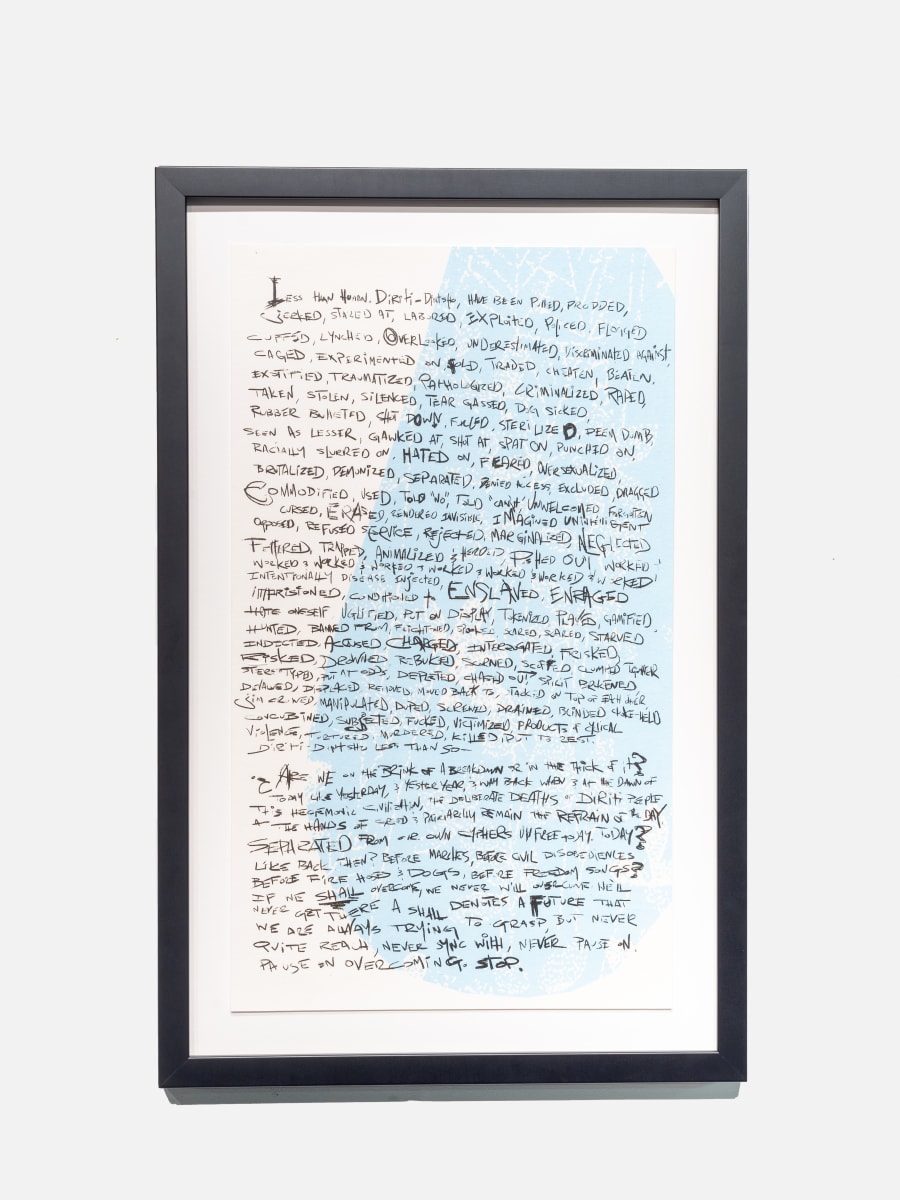 LESS THAN HUMAN. DIRITI-DINTSHO, HAVE BEEN PULLED, PRODDED,
JERKED, STARED AT, LABORED, EXPLOITED, POLICED, FLOGGED
CUFFED, LYNCHED, OVERLOOKED, UNDERESTIMATED, DISCRIMINATED AGAINST,
CAGED, EXPERIMENTED ON, SOLD, TRADED, CHEATEN, BEATEN.
EXOTIFIED, TRAUMATIZED, PATHOLOGIZED, CRIMINALIZED, RAPED,
TAKEN, STOLEN, SILENCED, TEAR GASSED, DOG SICKED.
RUBBER BULLETED, SHUT DOWN, FOOLED, STERILIZED, DEEM DUMB,
SEEN AS LESSER, GAWKED AT, SHOT AT, SPAT ON, PUNCHED ON,
RACIALLY SLURRED ON. HATED ON, FEARED, OVERSEXUALIZED,
BRUTALIZED, DEMONIZED, SEPARATED, DENIED ACCESS, EXCLUDED, DRAGGED
COMMODIFIED, USED, TOLD "NO", TOLD "CANNOT" UNWELCOMED, FORGOTTEN
CURSED, ERASED, RENDERED INVISIBLE, IMAGINED UNINTELLIGENT
OPPOSED, REFUSED SERVICE, REJECTED, MARGINALIZED NEGLECTED
TRAPPED, ANIMALIZED & HEROED PUSHED OUT WORKED
WORKED & WORKED & WORKED & WORKED & WORKED & WORKED & WORKED
INTENTIONALLY DISEASE INJECTED,
IMPRISIONED, CONDITIONED + ENSLAVED, ENRAGED
HATE ONESELF UGLIFIED, PUT ON DISPLAY, TOKENIZED PLAYED, GAMIFIED
HUNTED, BANNED FROM, SPOOKED, SCARED, STARVED
INDICTED, ACCUSED CHARGED, INTERROGATED, FRISKED.
RISKED, DROWNED REBUKED, SCORNED, CLUMPED TIGHTER
STEREOTYPED, PUT AT ODDS, DEPLETED, CHASED OUT, SPIRIT DARKENED
DISPLACED, REMOVED, MOVED BACK TO, STACKED ON TOP OF EACH OTHER
JIM CROWED, MANIPULATED, DUPED, SCREWED, DRAINED, BLINDED
CONCUBINED, SUBJECTED, FUCKED, VICTIMIZED, PRODUCTS OF CYCLICAL
VIOLENCE, TORTURED, MURDERED, KILLED, PUT TO REST.
DIRITI-DINTSHO LESS THAN SO—
¿ ARE WE ON THE BRINK OF A BREAKDOWN OR IN THE THICK OF IT?
TODAY LIKE YESTERDAY, & YESTER YEAR, & WAY BACK WHEN & AT THE DAWN OF
THIS HEGEMONIC CIVILIZATION, THE DELIBERATE DEATHS OF DIRITI PEOPLE
AT THE HANDS OF GREED & PATRIARCHY REMAIN THE REFRAIN OF THE DAY
SEPARATED FROM OUR OWN CYPHERS UNFREE TODAY. TODAY?
LIKE BACK THEN? BEFORE MARCHES, BEFORE CIVIL DISOBEDIENCES
BEFORE FIRE HOSES & DOGGS, BEFORE FREEDOM SONGS?
IF WE SHALL OVERCOME, WE NEVER WILL OVERCOME WE'LL
NEVER GET THERE A SHALL DENOTES A FUTURE THAT
WE ARE ALWAYS TRYING TO GRASP, BUT NEVER
QUITE REACH, NEVER SYNC WITH, NEVER PAUSE ON.
PAUSE ON OVERCOMING. STOP.